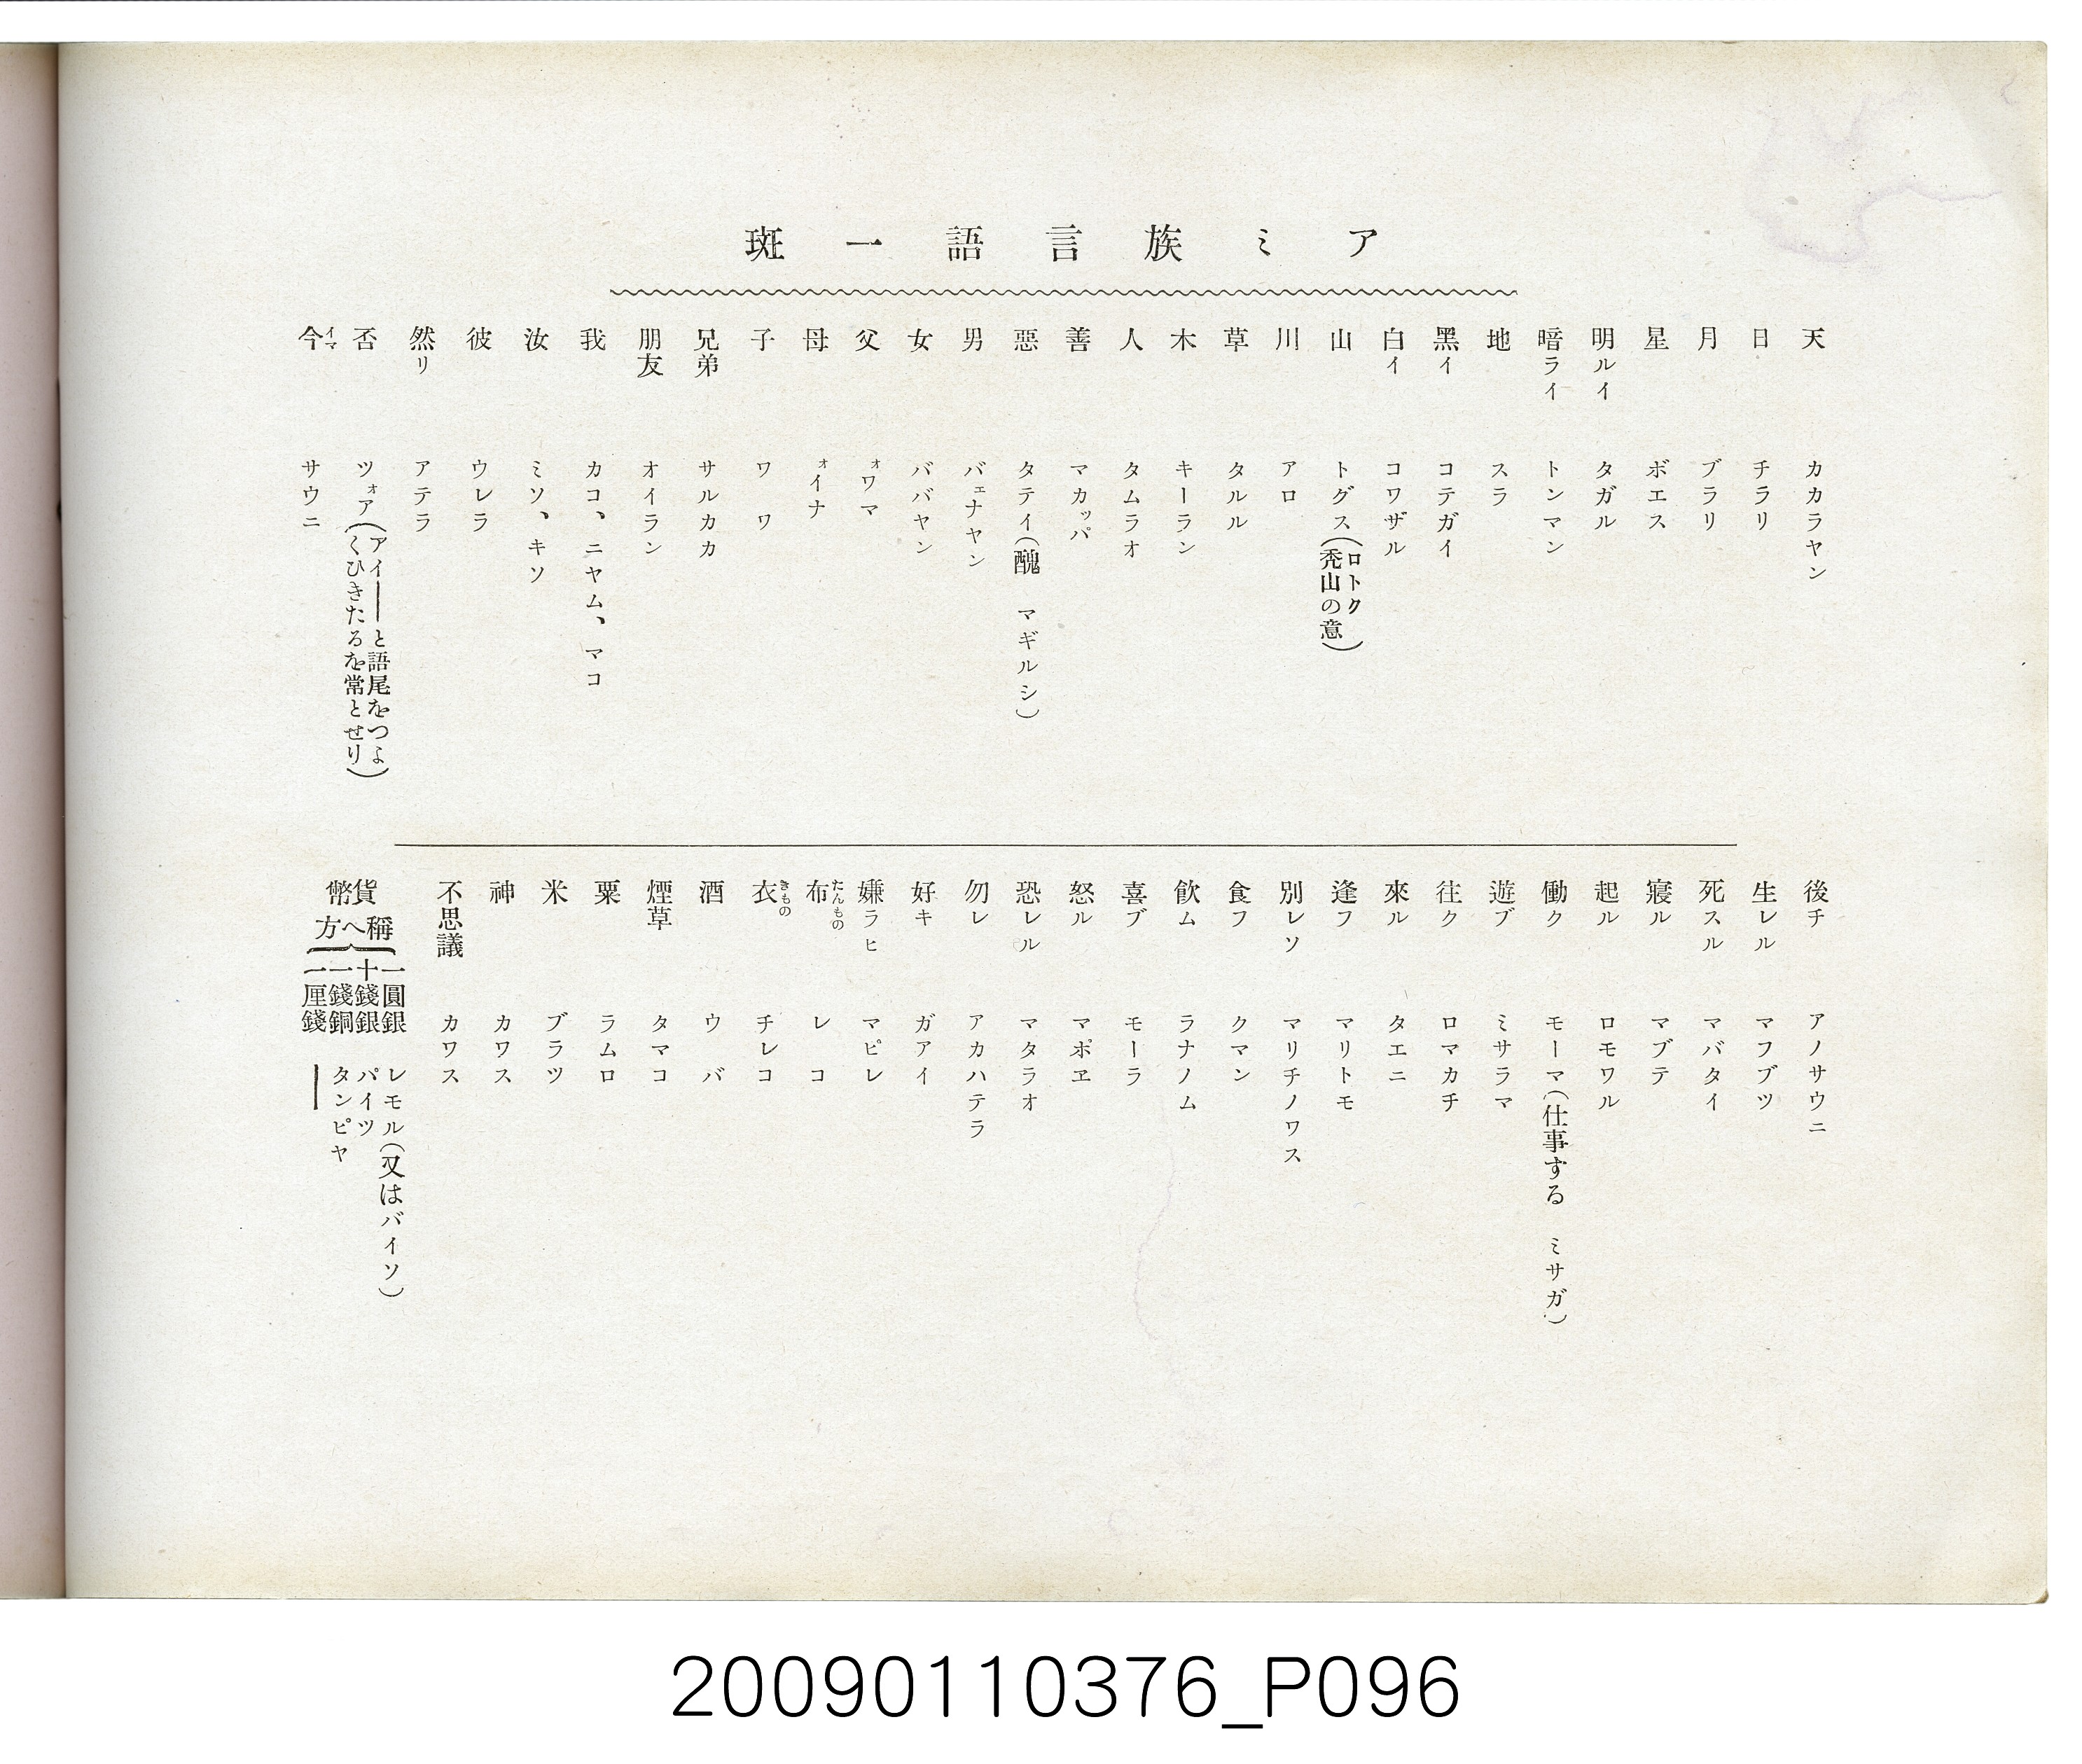 アミ族言語一斑
天 カカラヤン
日 チラリ
月 ブラリ
星 ボエス
明ルイ タガル
暗ライ トンマン
地 スラ
黑イ コテガイ
白イ コワザル
山 トグス(ロトク 禿山の意)
川 アロ
草 タルル
木 キーラン
人 タムラオ
善 マカッパ
惡 タテイ(醜 マギルシ)
男 バェナヤン
女 ババヤン
父 ォワマ
母 ォイナ
子 ワワ
兄弟 サルカカ
朋友 オイラン
我 カコ、ニヤム、マコ
汝 ミソ、キソ
彼 ウレラ
然リ アテラ
否 ツォア(アイ――と語尾をつよくひきたろを常とせり)
今イマ サウニ
後チ アノサウニ
生レル マフブツ
死スル マバタイ
寢ル マブテ
起ル ロモワル
働ク モーマ(仕事する ミサガ)
遊ブ ミサラマ
往ク ロマカチ
來ル タエニ
逢フ マリトモ
別レソ マリチノワス
食フ クマン
飮ム ラナノム
喜ブ モーラ
怒ル マポヱ
恐レル マタラオ
勿レ アカハテラ
好キ ガアイ
嫌ラヒ マピレ
布たんもの レコ
衣きもの チレコ
酒 ウバ
煙草 タマコ
粟 ラムロ
米 ブラツ
神 カワス
不思議 カワス
貨幣稱へ方
一圓銀 レモル(又はバイソ)
十錢銀 パイツ
一錢銅 タンピヤ
一厘錢 ――
20090110376_P096